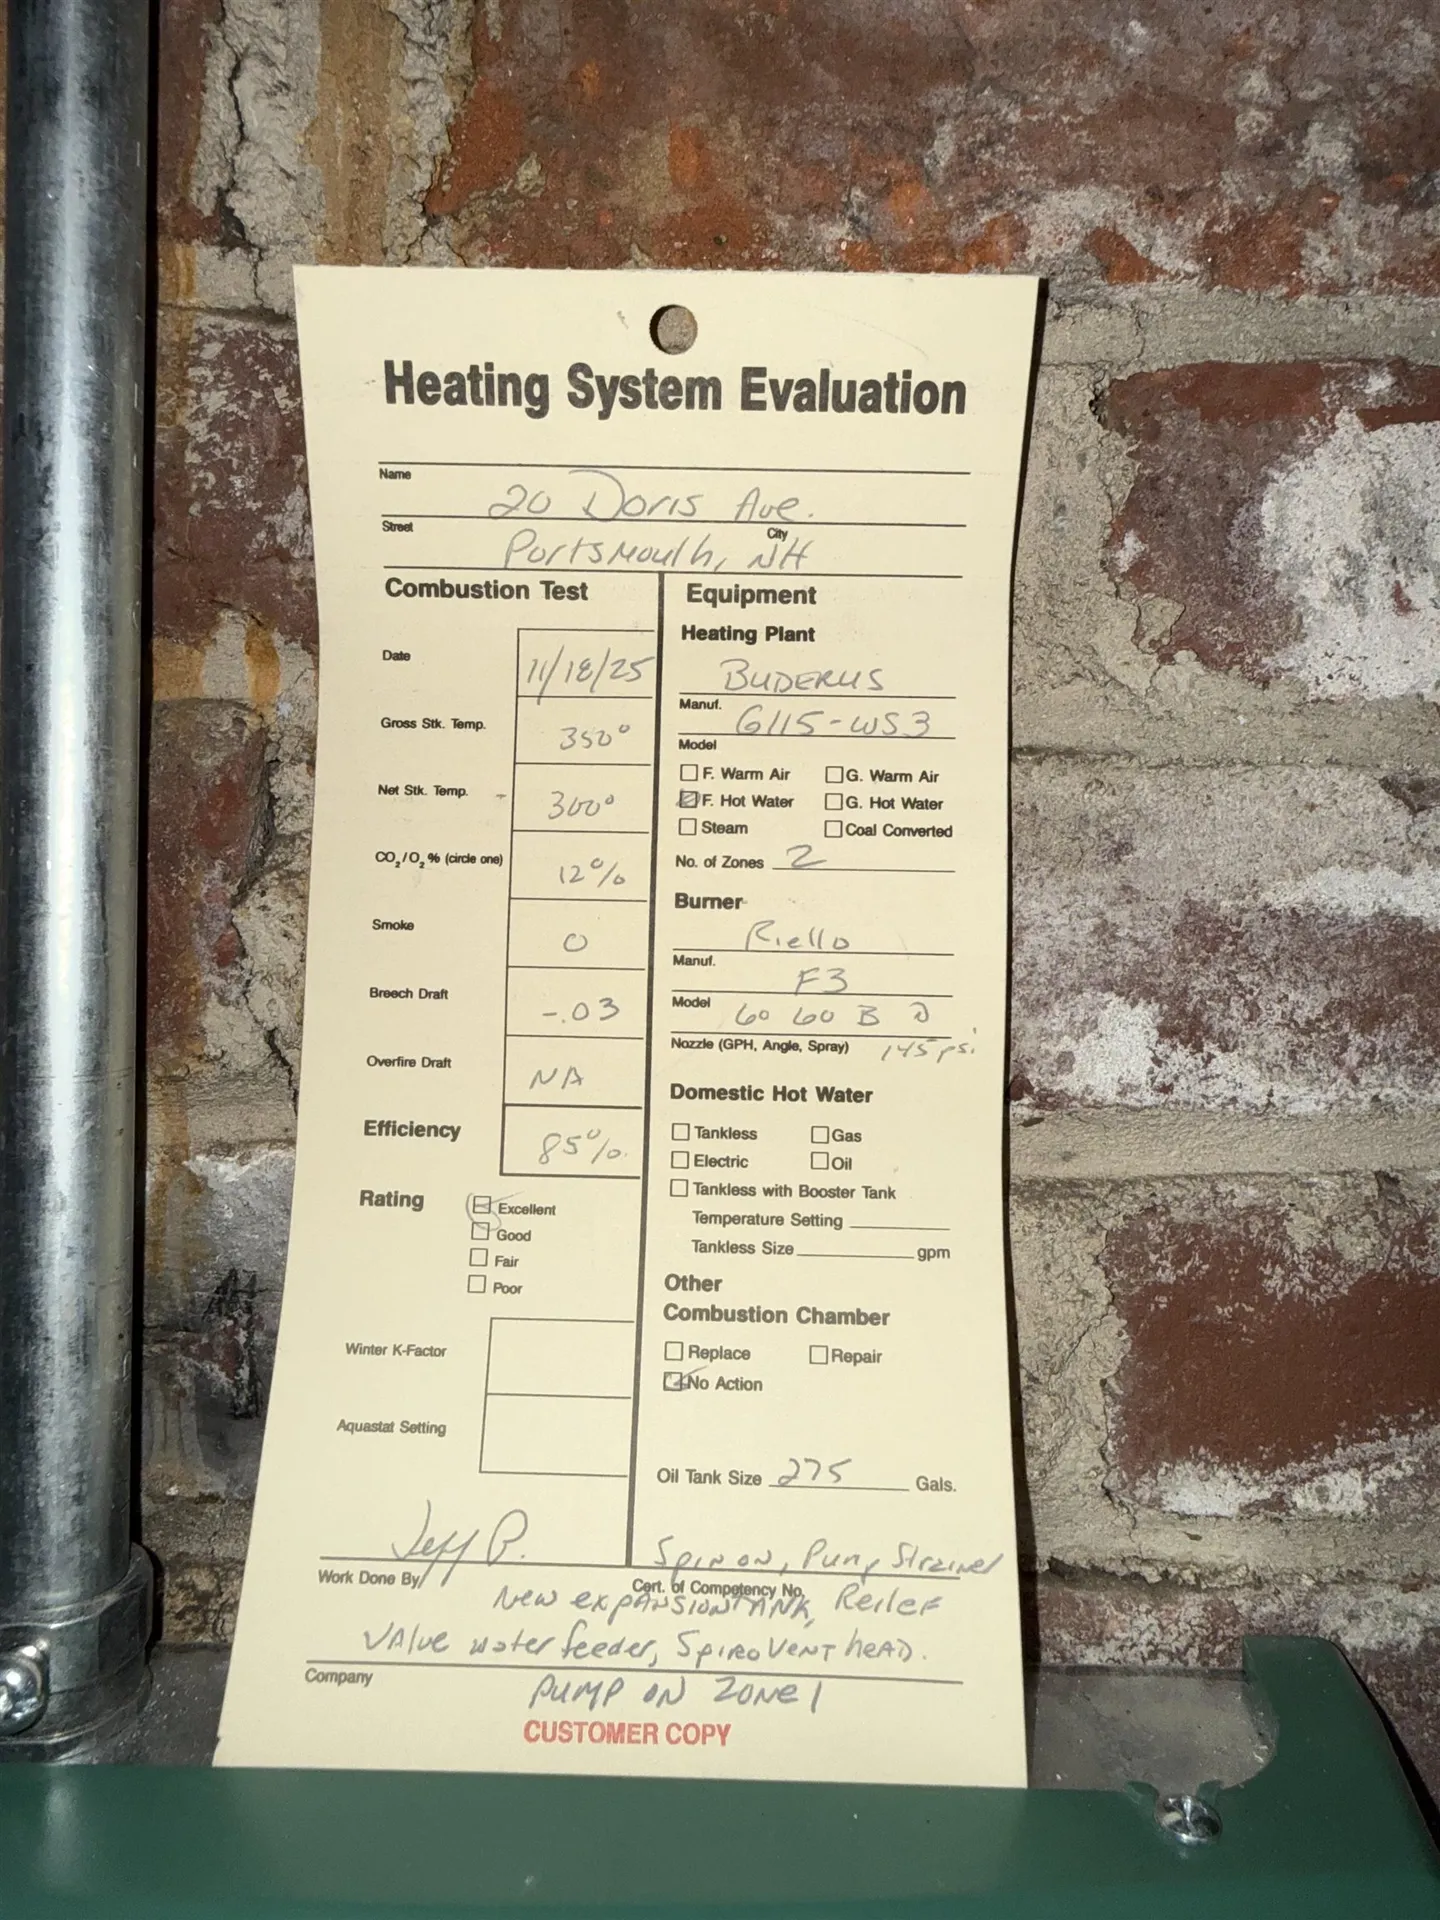 Heating System Evaluation
Name
20 Doris Ave.
Street City
Portsmouth, NH
Combustion Test
Date 11/18/25
Gross Stk. Temp. 350°
Net Stk. Temp. 300°
CO2/O2 % (circle one) 12%
Smoke 0
Breech Draft -.03
Overfire Draft NA
Efficiency 85%
Rating Excellent
Good
Fair
Poor
Winter K-Factor
Aquastat Setting
Equipment
Heating Plant
BUDERUS
Manuf.
G115-WS3
Model
F. Warm Air G. Warm Air
F. Hot Water G. Hot Water
Steam Coal Converted
No. of Zones 2
Burner
Riello
Manuf.
F3
Model
60 60 B D
Nozzle (GPH, Angle, Spray) 145 psi
Domestic Hot Water
Tankless Gas
Electric Oil
Tankless with Booster Tank
Temperature Setting
Tankless Size gpm
Other
Combustion Chamber
Replace Repair
No Action
Oil Tank Size 275 Gals.
Jeff P. Spin on, Pump Strainer
Work Done By Cert. of Competency No.
New expansion TANK, Reilef
VAlve water feeder, SpiroVent heAD.
Company
PUMP ON ZONE 1
CUSTOMER COPY